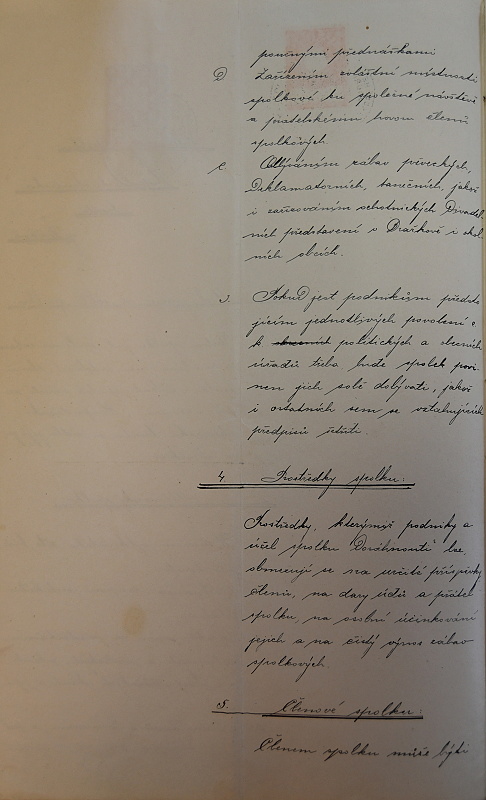 poučnými přednáškami
D Zařízením zvláštní místnosti
spolkové ku společné návštěvě
a přátelskému hovoru členů
spolkových.
e. Odbýváním zábav pěveckých,
Deklamatorních, tanečních, jakož
i zařizováním ochotnických Divadel-
ních představení v Dražkově i okol-
ních obcích.
Pokud jest podnikům předsta
jícím jednotlivých povolení
k politických a obecních
úřadů třeba bude spolek povi-
nen jich sobě dobývati, jakož
i ostatních sem se vztahujících
předpisů šetřiti.
4. Prostředky spolku:
Prostředky, kterýmiž podniky a
účel spolku se
obmezují se na určité příspěvky
členův, na dary údů a přátel
spolku, na osobní účinkování
jejich a na čistý výnos zábav
spolkových.
5. Členové spolku:
Členem spolku může býti